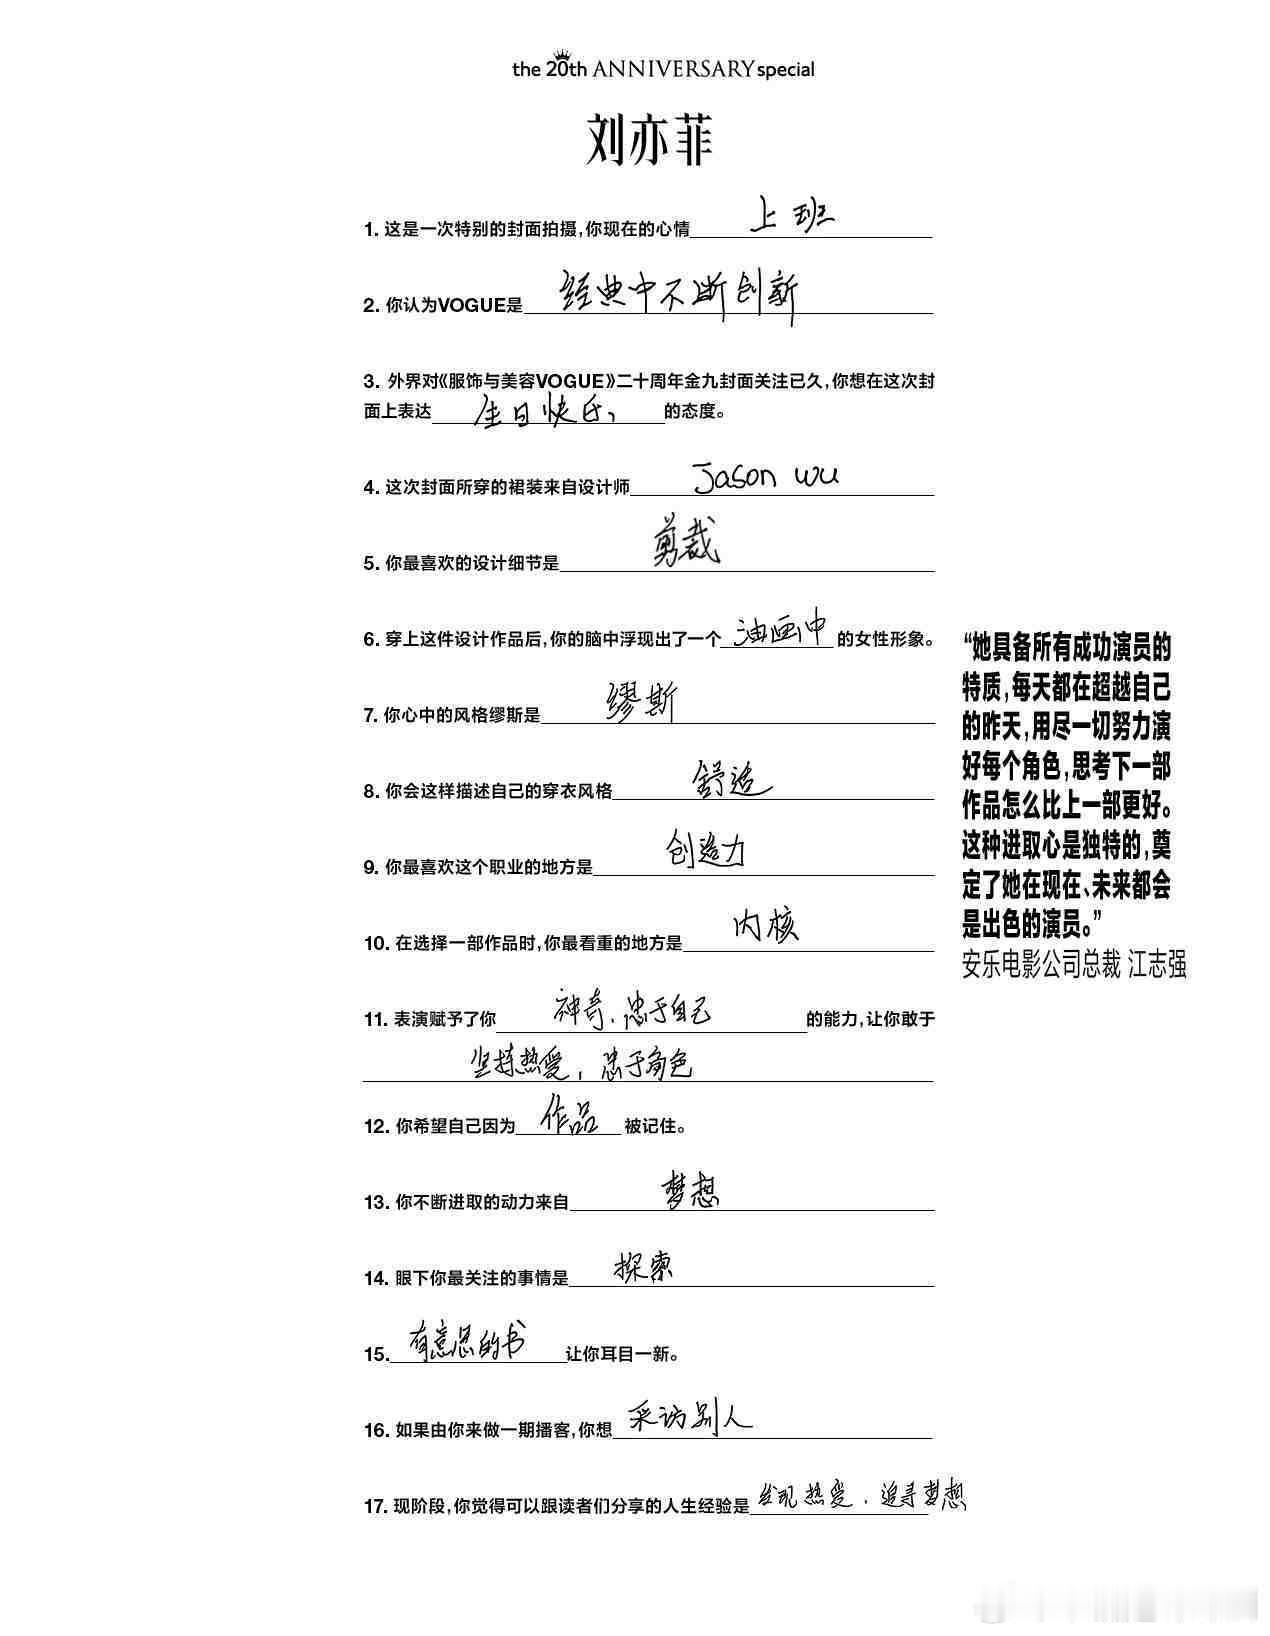 the 20th ANNIVERSARY special
刘亦菲
1. 这是一次特别的封面拍摄,你现在的心情 上班
2. 你认为VOGUE是 经典中不断创新
3. 外界对《服饰与美容VOGUE》二十周年金九封面关注已久,你想在这次封
面上表达 生日快乐 的态度。
4. 这次封面所穿的裙装来自设计师 Jason Wu
5. 你最喜欢的设计细节是 剪裁
6. 穿上这件设计作品后,你的脑中浮现出了一个 油画中 的女性形象。
7. 你心中的风格缪斯是 缪斯
8. 你会这样描述自己的穿衣风格 舒适
9. 你最喜欢这个职业的地方是 创造力
10. 在选择一部作品时,你最看重的地方是 内核
11. 表演赋予了你 神奇、忠于自己 的能力,让你敢于
坚持热爱,忠于角色
12. 你希望自己因为 作品 被记住。
13. 你不断进取的动力来自 梦想
14. 眼下你最关注的事情是 探索
15. 有意思的书 让你耳目一新。
16. 如果由你来做一期播客,你想 采访别人
17. 现阶段,你觉得可以跟读者们分享的人生经验是 发现热爱、追寻梦想
“她具备所有成功演员的
特质,每天都在超越自己
的昨天,用尽一切努力演
好每个角色,思考下一部
作品怎么比上一部更好。
这种进取心是独特的,奠
定了她在现在、未来都会
是出色的演员。”
安乐电影公司总裁 江志强